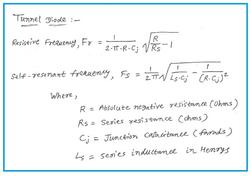 Tunnel Diode :-
Resistive Frequency, Fr = 1/(2·π·R·Cj) √(R/Rs - 1)
Self-resonant frequency, Fs = 1/(2π) √(1/(Ls·Cj) - 1/(R·Cj)²)
Where,
R = Absolute negative resistance (ohms)
Rs = Series resistance (ohms)
Cj = Junction Capacitance (farads)
Ls = Series inductance in Henrys